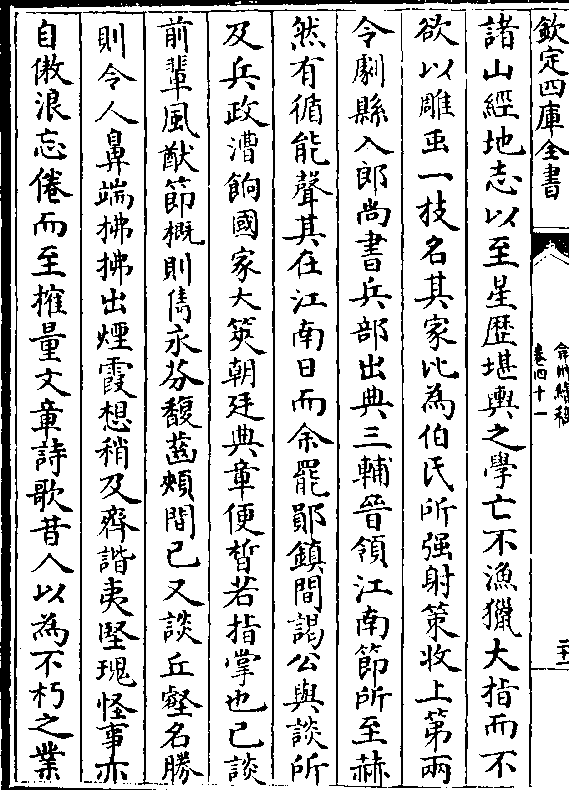 欽定四庫全書
弇州續稿
卷四十一
諸山經地志以至星歴堪輿之學亡不漁獵大指而不
欲以雕䖝一技名其家比為伯氏所强射策收上第兩
令劇縣入郎尚書兵部出典三輔晉領江南節所至赫
然有循能聲其在江南日而余罷鄖鎮間謁公與談所
及兵政漕餉國家大筴朝廷典章便晳若指掌也已談
前輩風猷節概則雋永芬馥齒頰間已又談丘壑名勝
則令人鼻端拂拂出煙霞想稍及齊諧夷堅瑰怪事亦
自傲浪忘倦而至搉量文章詩歌昔人以為不朽之業